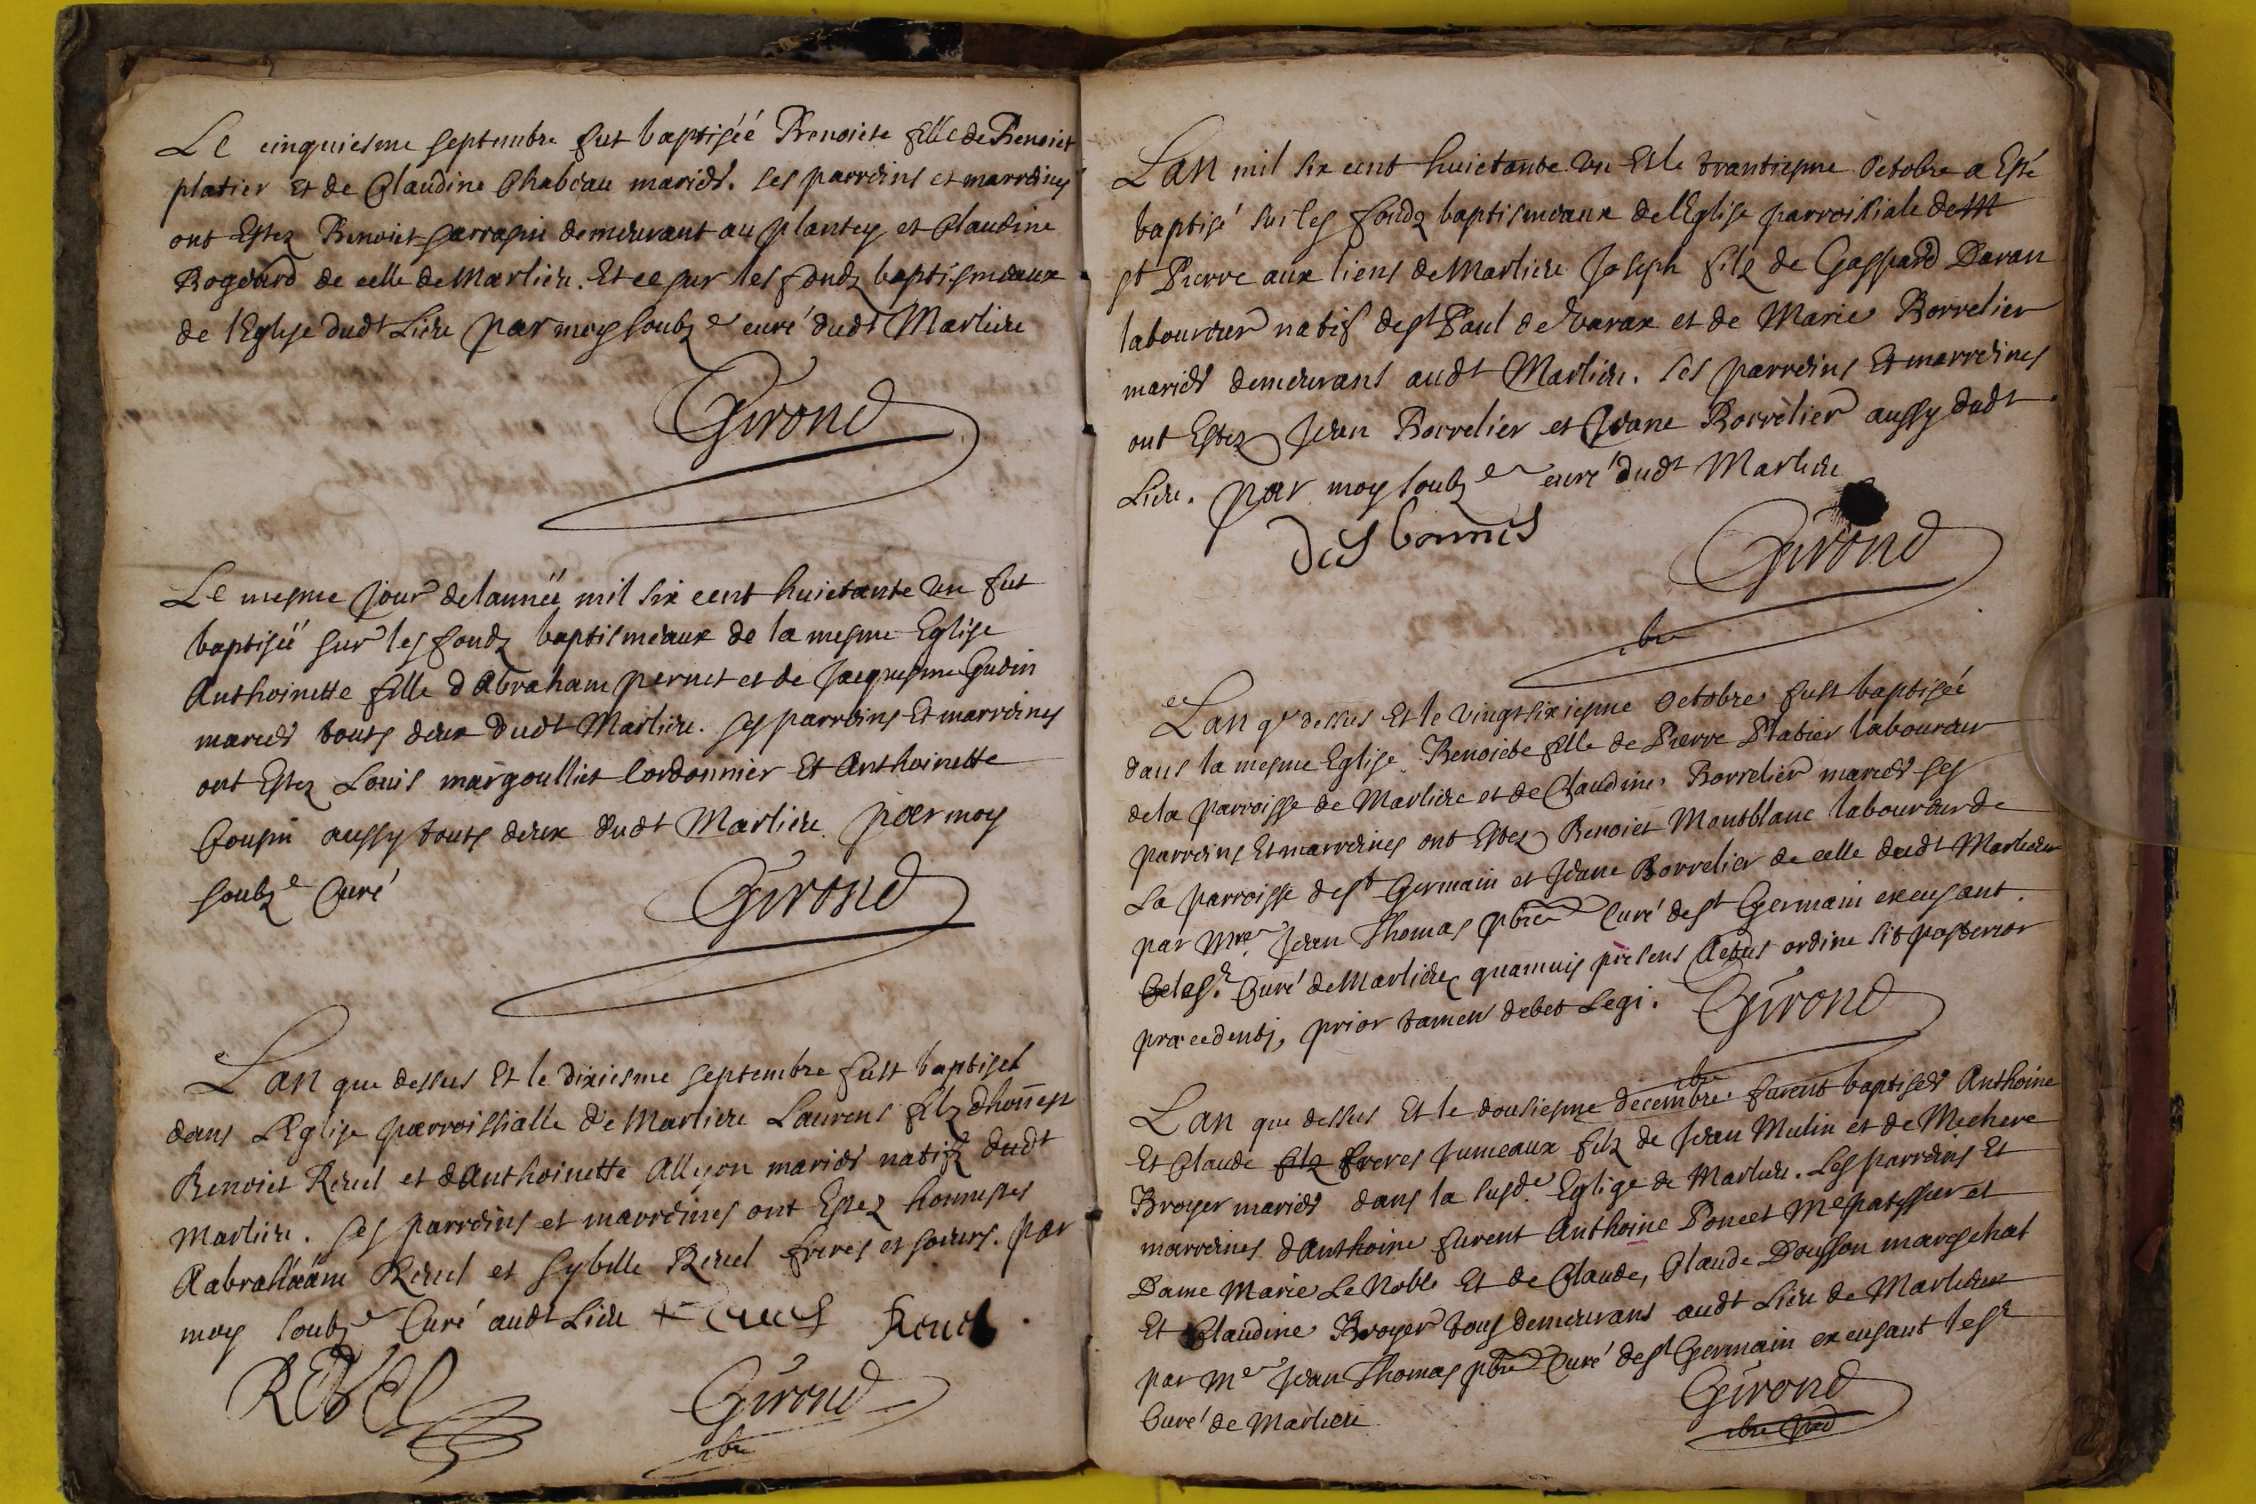 Le cinquiesme septembre fut baptiséé Benoiste fille de Benoict
platier et de Claudine Chabeau mariés. ses parreins et marreines
ont Estez Benoict sarrasin demeurant au plantey et Claudine
Rogeard de celle de Marlieu. Et ce sur les fondz baptismeaux
de l'Eglise dudt Lieu par moy soubz e curé dudt Marlieu
Girond
Le mesme Jour de lannéé mil six cent huictante un fut
baptiséé sur les fondz baptismeaux de la mesme Eglise
Anthoinette fille d'Abraham pernet et de Jacquesme Gudin
mariés touts deux dudt Marlieu. ses parreins Et marreines
ont Estez Louis margoulliet Cordonnier Et Anthoinette
Cousin aussy touts deux dudt Marlieu par moy
soubz e Curé
Girond
Lan que dessus Et le dixiesme septembre fust baptisé
dans L'Eglise parroissialle de Marlieu Laurens filz d'honest
Benoict Revel et d'Anthoinette Allyon mariés natifz dudt
Marlieu. ses parreins et marreines ont Estez honnestes
Aabrahaam Revel et sybille Revel freres et soeurs. par
moy soubz e Curé audt Lieu Revel
REVel
Girond
Lan mil six cent huictante un Et le trantiesme Octobre a Esté
baptisé sur les fondz baptismeaux de l'Eglise parroissiale de M
st Pierre aux liens de Marlieu Joseph filz de Gaspard Davan
laboureur natif de st Paul de Varax et de Marie Borrelier
mariés demeurans audt Marlieu. ses parreins Et marreines
ont Estez Jean Borrelier et Jeane Borrelier aussy dudt
Lieu. par moy soubz e curé dudt Marlieu
des bonnes
Girond
Lan qe dessus Et le vingtsixiesme Octobre fust baptiséé
dans la mesme Eglise Benoiste fille de Pierre Platier laboureur
de la parroisse de Marlieu et de Claudine Borrelier mariés ses
parreins Et marreines ont Estez Benoict Montblanc laboureur de
La parroisse de st Germain et Jeane Borrelier de celle dudt Marlieu
par Mre Jean Thomas pbre Curé de st Germain excusant
le sr. Curé de Marlieu quamuis présens Actus ordine sit posterior
præcedenti, prior tamen debet Legi.
Girond
Lan que dessus Et le dousiesme decembre furent baptisés Anthoine
Et Claude filz freres Jumeaux filz de Jean Mulin et de Mechere
Broyer mariés dans la susde. Eglige de Marlieu. Les parreins Et
marreines d'Anthoine furent Anthoine Poncet Me patissier et
Dame Marie Le Noble Et de Claude, Claude Dousson mareschal
Et Claudine Broyer tous demeurans audt Lieu de Marlieu
par Me Jean Thomas pbre Curé de st Germain excusant le sr
Curé de Marlieu
Girond